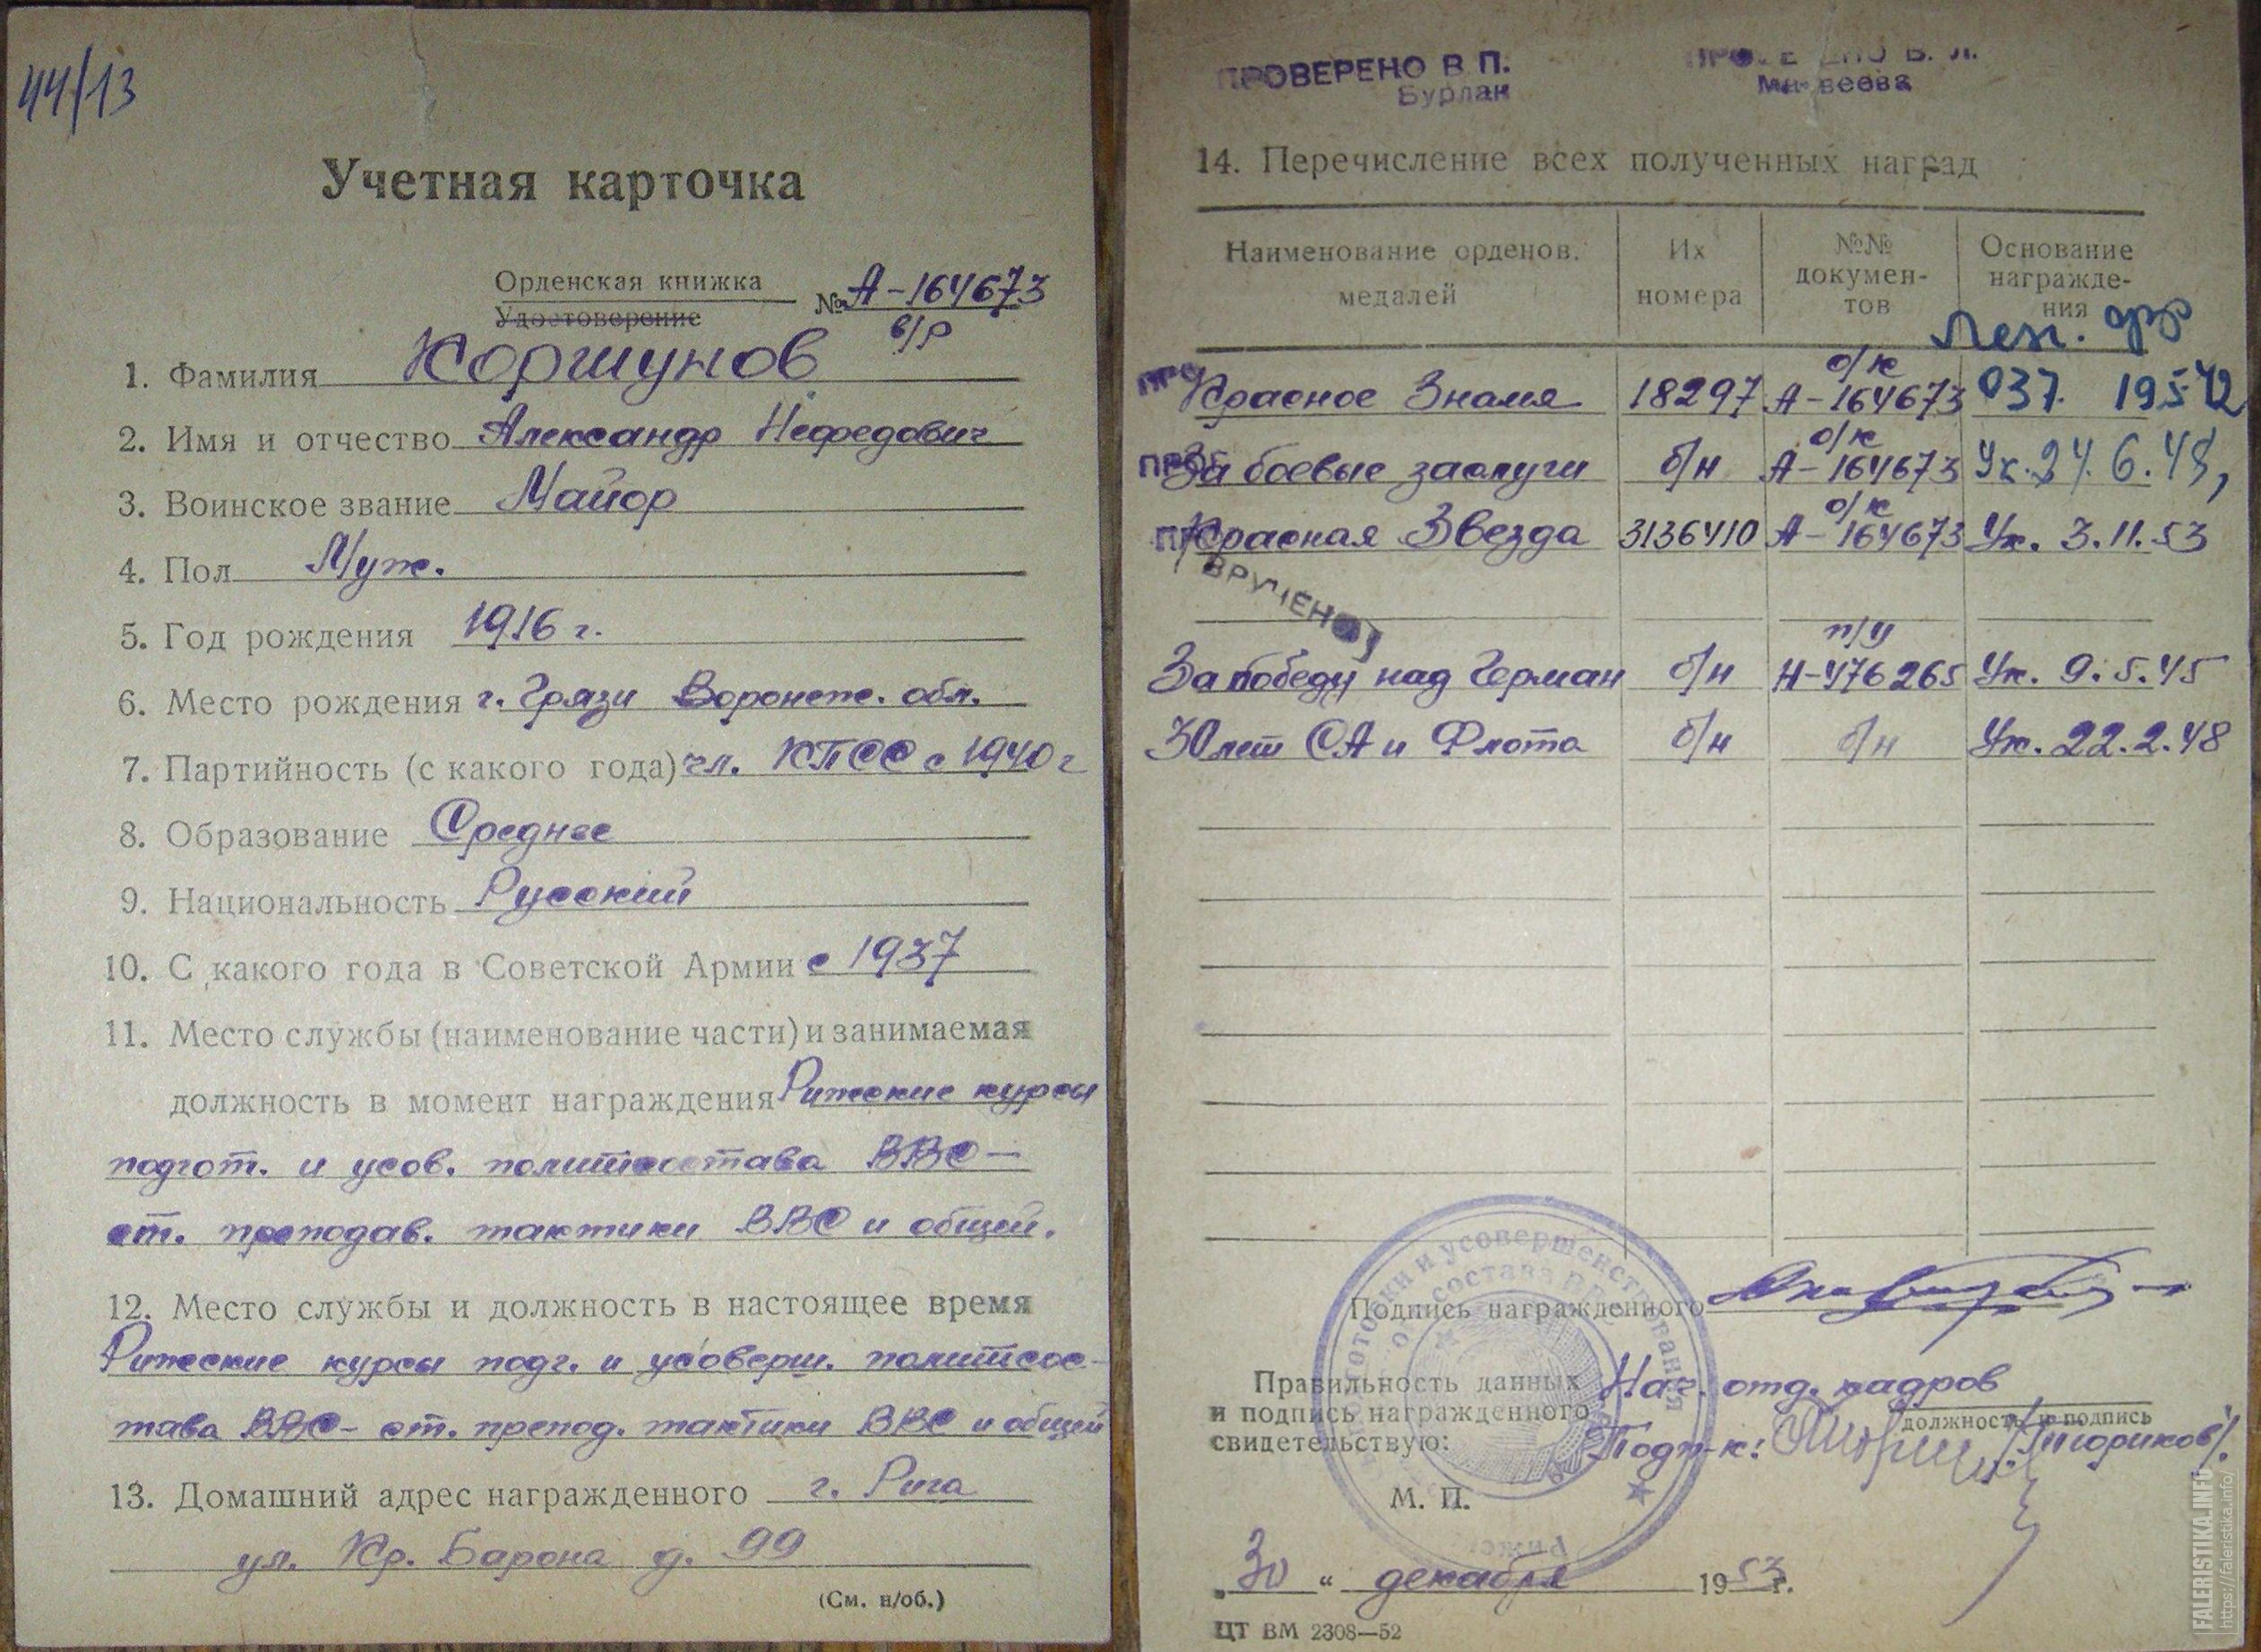 44/13
Учетная карточка
Орденская книжка
Удостоверение
№ А-164673
в/р
1. Фамилия Коршунов
2. Имя и отчество Александр Нефедович
3. Воинское звание Майор
4. Пол Муж.
5. Год рождения 1916 г.
6. Место рождения г. Грязи Воронеж. обл.
7. Партийность (с какого года) чл. КПСС с 1940 г
8. Образование Среднее
9. Национальность Русский
10. С какого года в Советской Армии с 1937
11. Место службы (наименование части) и занимаемая
должность в момент награждения Рижские курсы
подгот. и усов. политсостава ВВС —
ст. преподав. тактики ВВС и общей.
12. Место службы и должность в настоящее время
Рижские курсы подг. и усоверш. политсос-
тава ВВС - ст. препод. тактики ВВС и общей
13. Домашний адрес награжденного г. Рига
ул. Кр. Барона д. 99
(См. н/об.)
ПРОВЕРЕНО В П.
Бурлан
В. Л.
14. Перечисление всех полученных наград
Наименование орденов, медалей
Их номера
№№ докумен-тов
Основание награжде-ния
Лен. фр
о/к
Красное Знамя 18297 А-164673 037. 19542
о/к
За боевые заслуги б/н А-164673 Ук. 24.6.48,
о/к
Красная Звезда 3136410 А-164673 Ук. 3.11.53
ВРУЧЕНО
п/у
За победу над Герман б/н Н-476265 Ук. 9.5.45
30 лет СА и Флота б/н б/н Ук. 22.2.48
Подпись награжденного
Правильность данных Нач. отд. кадров
и подпись награжденного должность и подпись
свидетельствую: Подп-к:
М. П.
„ 30 “ декабря 1953 г.
ЦТ ВМ 2308—52
FALERISTIKA.INFO
https://faleristika.info/